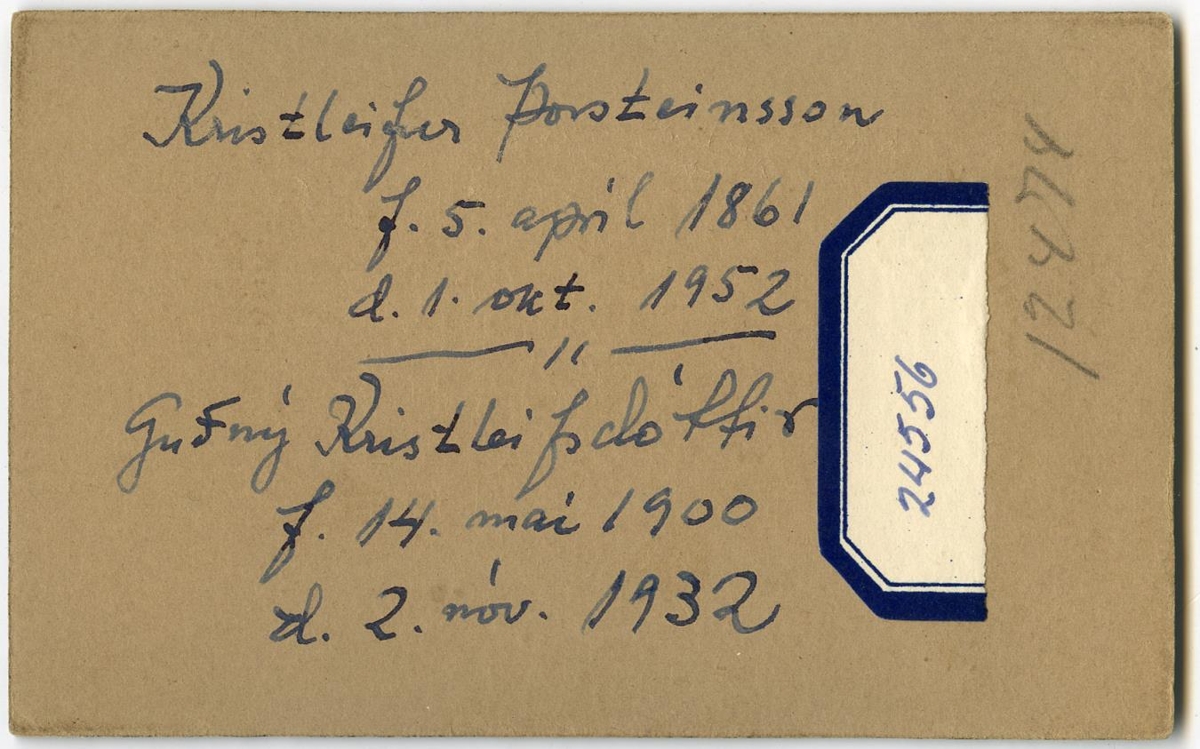 Kristleifur Þorsteinsson
f. 5. apríl 1861
d. 1. okt. 1952
— " —
Guðný Kristleifsdóttir
f. 14. mai 1900
d. 2. nóv. 1932
24556
12474